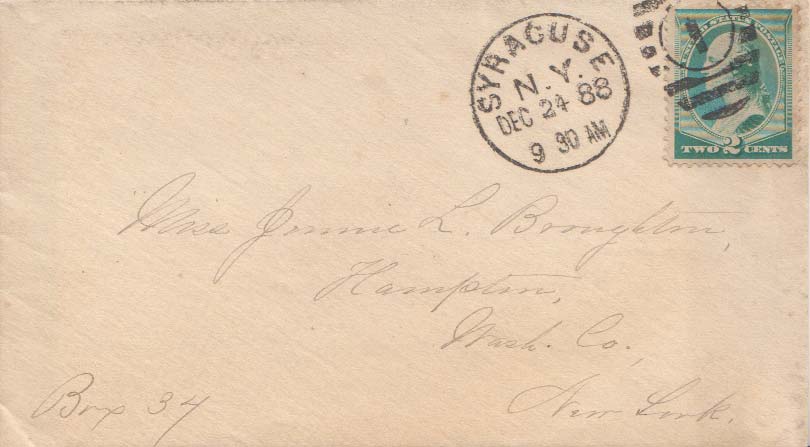 SYRACUSE
N.Y.
DEC 24 88
9 30 AM
1
UNITED STATES POSTAGE
TWO 2 CENTS
Miss Jennie L. Broughton,
Hampton,
Wash. Co.,
New York.
Box 34